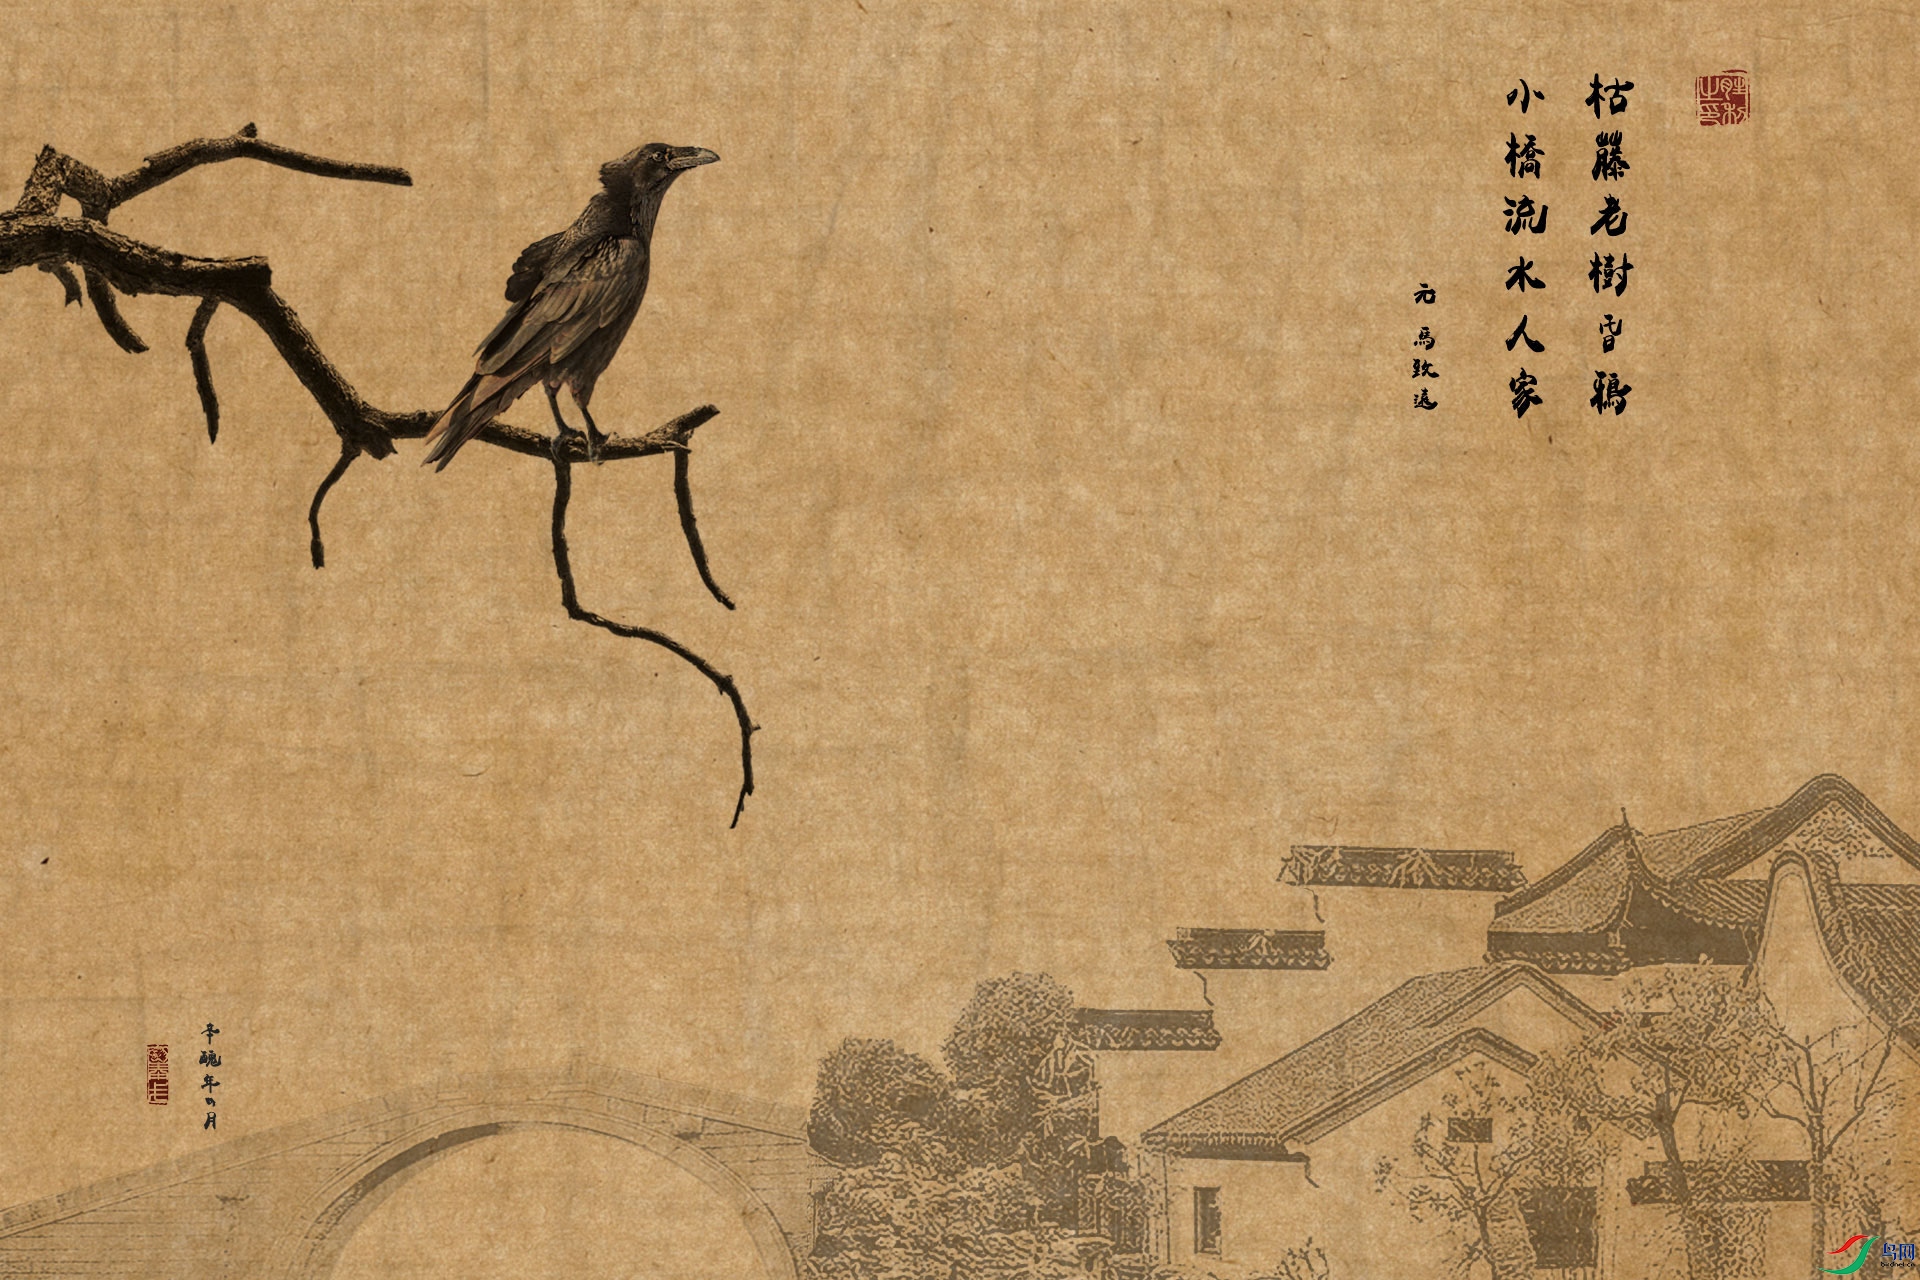 枯藤老樹昏鴉
小橋流水人家
元 馬致遠
辛醜年四月
鸟网
birdnet.cn